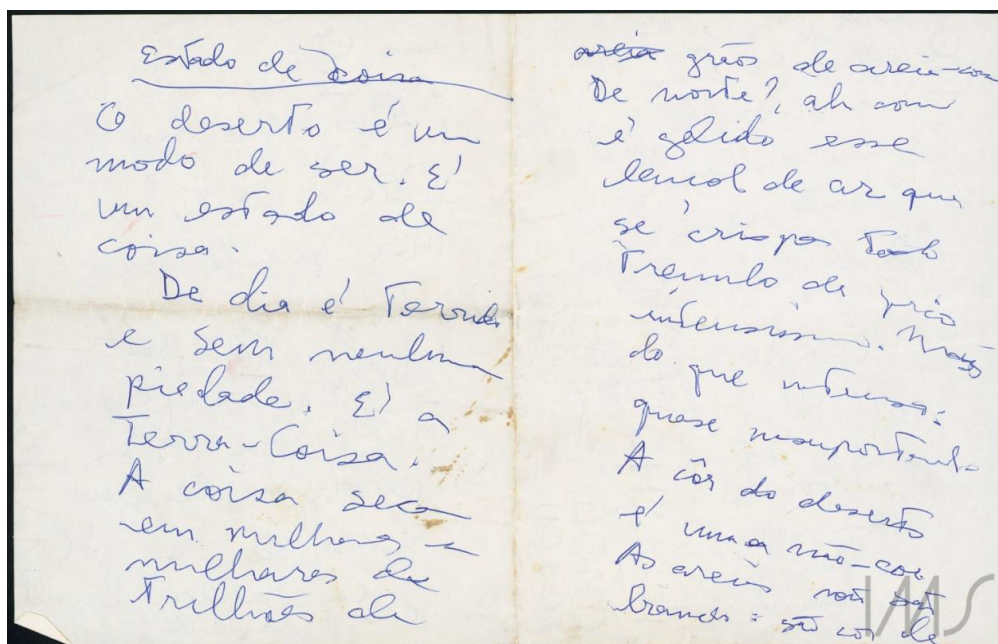 Estado de coisa
O deserto é um
modo de ser. É
um estado de
coisa.
De dia é tórrido
e sem nenhuma
piedade. É a
Terra-Coisa.
A coisa seca
em milhares e
milhares de
trilhões de
areia grãos de areia-
De noite?, ah com
é gélido esse
lençol de ar que
se crispa todo
trêmulo de frio
intensíssimo. Mais
do que intenso:
quase
A côr do deserto
é uma não-cor
As areias não são
brancas: são cor de
IMS